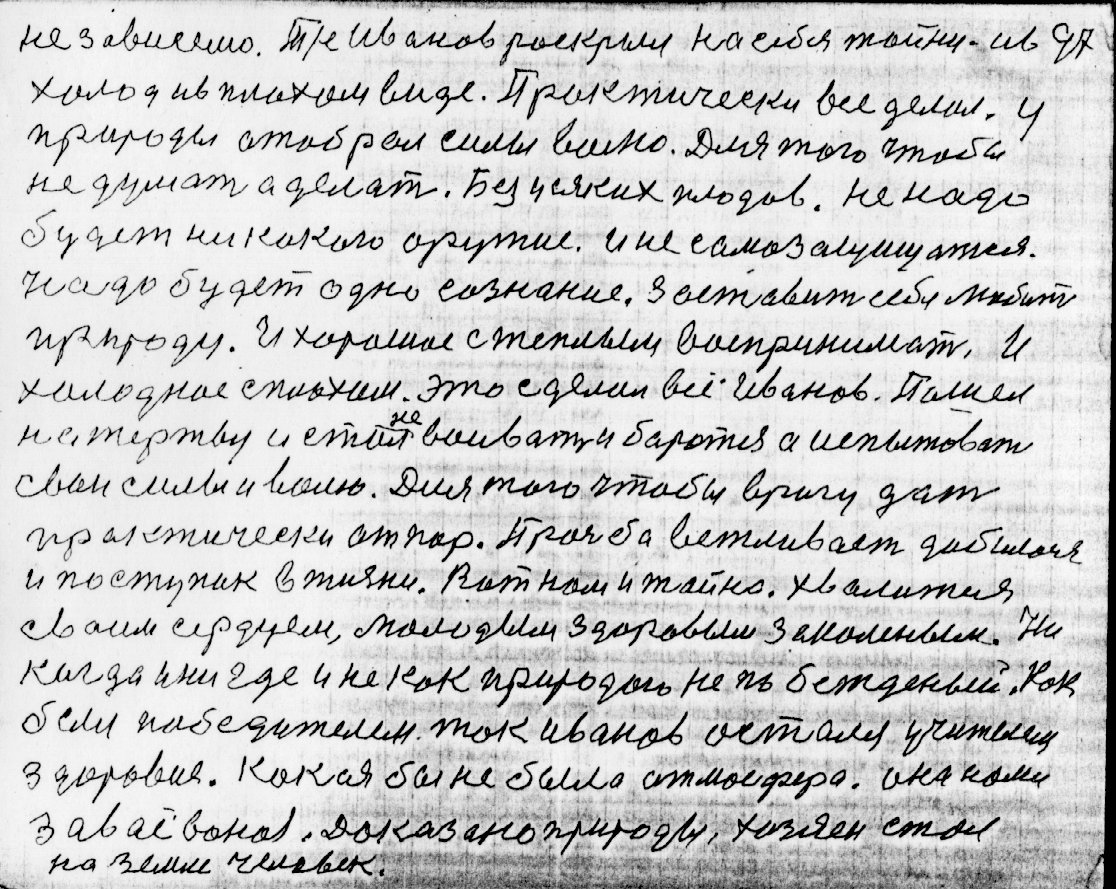 не зависемо. Т/е Иванов роскрыл на себя тайни. ив 97
холод ив плохом виде. Практически все делал. У
природы отобрал силы волю. Для того чтобы
не думат а делат. Без усяких плодов. не надо
будет никокого оружие. и не самозащищатся.
надо будет одно сознание. Заставит себя любит
природу. И хорошое с теплым воспринимат. И
холодное с плохим. это сделал всё Иванов. Пошел
на жертву и стал не воеват и баротся а испытоват
свои силы и волю. Для того чтобы врагу дат
практически отпор. Прозба ветливает добилася
и поступок в жизни. Вот ном и тайна. хвалится
своим сердцем, молодым здоровым закаленым. Ни
когда и ни где и не как природого не побежденый. Как
бели победителем. так иванов осталя учителем
здоровия. Кокая бы не была атмосфера. она нами
заваёвона. Доказано природы, хозяен стал
на земле человек.